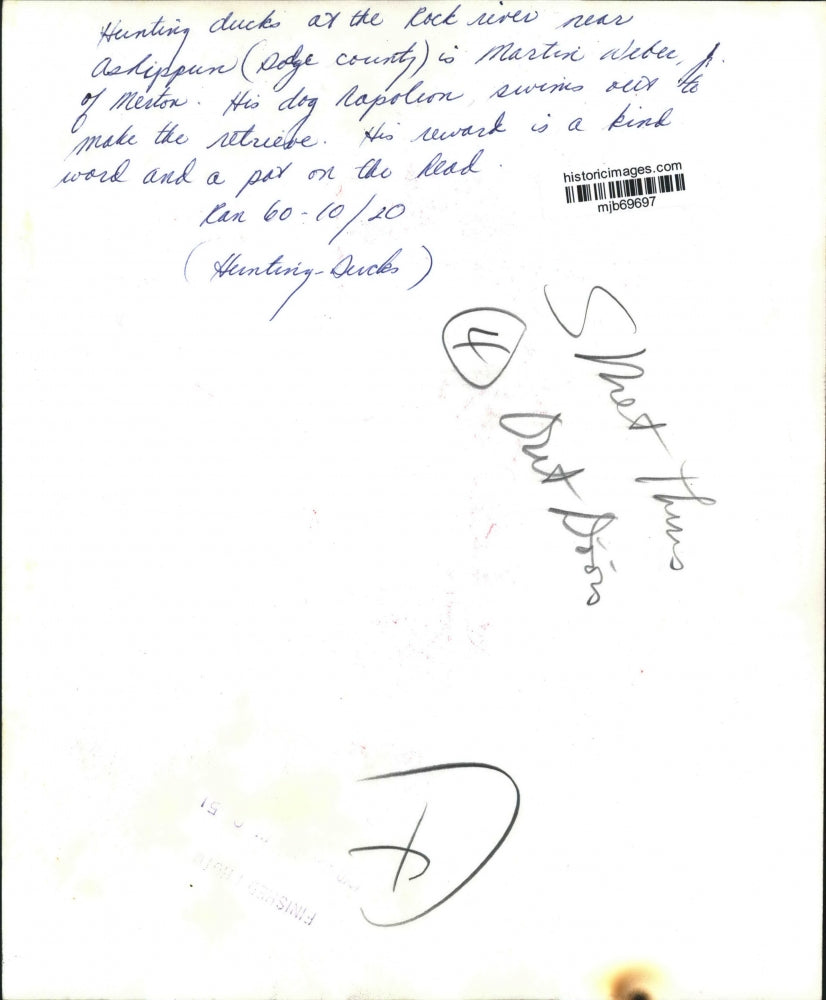 Hunting ducks at the Rock river near
Ashippun (Dodge county) is Martin Weber, jr.
of Merton. His dog Napoleon, swims out to
make the retrieve. His reward is a kind
word and a pat on the head.
Ran 60-10/20
(Hunting-Ducks)
historicimages.com
mjb69697
4
S Met Thurs
Out Doors
FINISHED PHOTO
51